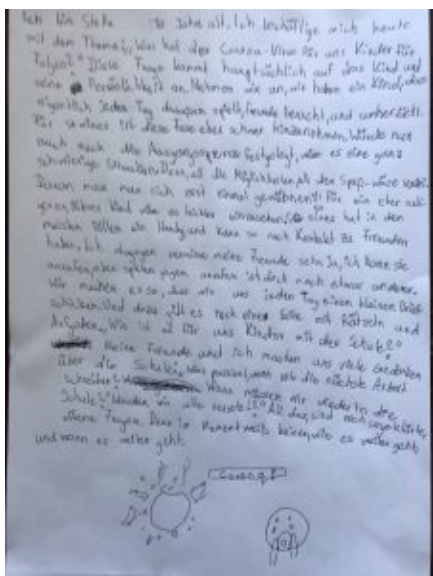 Ich bin Stella 10 Jahre alt. Ich beschäftige mich heute
mit dem Thema: „Was hat das Corona-Virus für uns Kinder für
Folgen?" Diese Frage kommt hauptsächlich auf das Kind und
seine Persönlichkeit an. Nehmen wir an, wir haben ein Kind, das
eigentlich jeden Tag draußen spielt, Freunde besucht, und
Für so eines ist diese Phase eher schwer hinzunehmen. Würde nun
auch noch die Ausgangssperre festgelegt, wäre es eine ganz
schwierige Situation. Denn, all die Möglichkeiten, all der Spaß wäre
Daran muss man sich erst einmal gewöhnen!! Für ein eher
Kind wäre es leichter eines hat in den
meisten Fällen ein Handy und kann so noch Kontakt zu Freunden
haben. Ich dagegen vermisse meine Freunde sehr. Ja, ich kann sie
anrufen, aber spielen gegen anrufen ist doch noch etwas anderes.
Wir machen es so, dass wir uns jeden Tag einen kleinen Brief
schreiben. Und dazu gibt es noch eine Seite mit Rätseln und
Aufgaben. Wie ist es für uns Kinder mit der Schule?
Meine Freunde und ich machen uns viele Gedanken
über die Schule: Was passiert, wenn wir die nächste Arbeit
schreiben? Wann müssen wir wieder in die
Schule? Werden wir alle versetzt? All das sind noch ungeklärte,
offene Fragen. Denn im Moment weiß keiner, wie es weiter geht
und wann es weiter geht.
Corona!